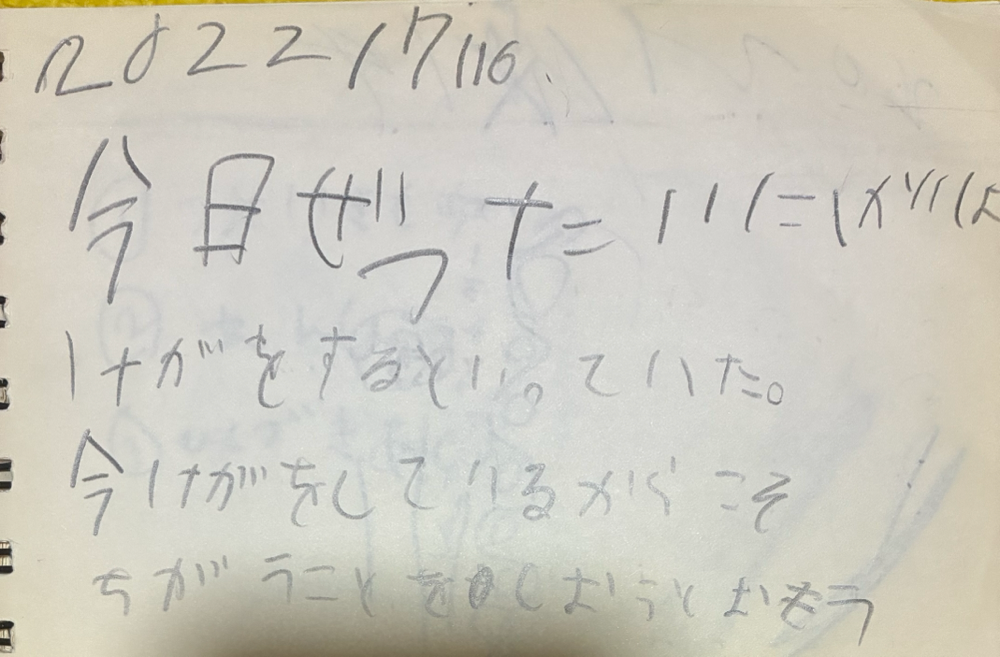 2022/7/16.
今日ぜったいに
けがをするとい。ていた。
今けがをしているからこそ
ちがうことをしようとおもう